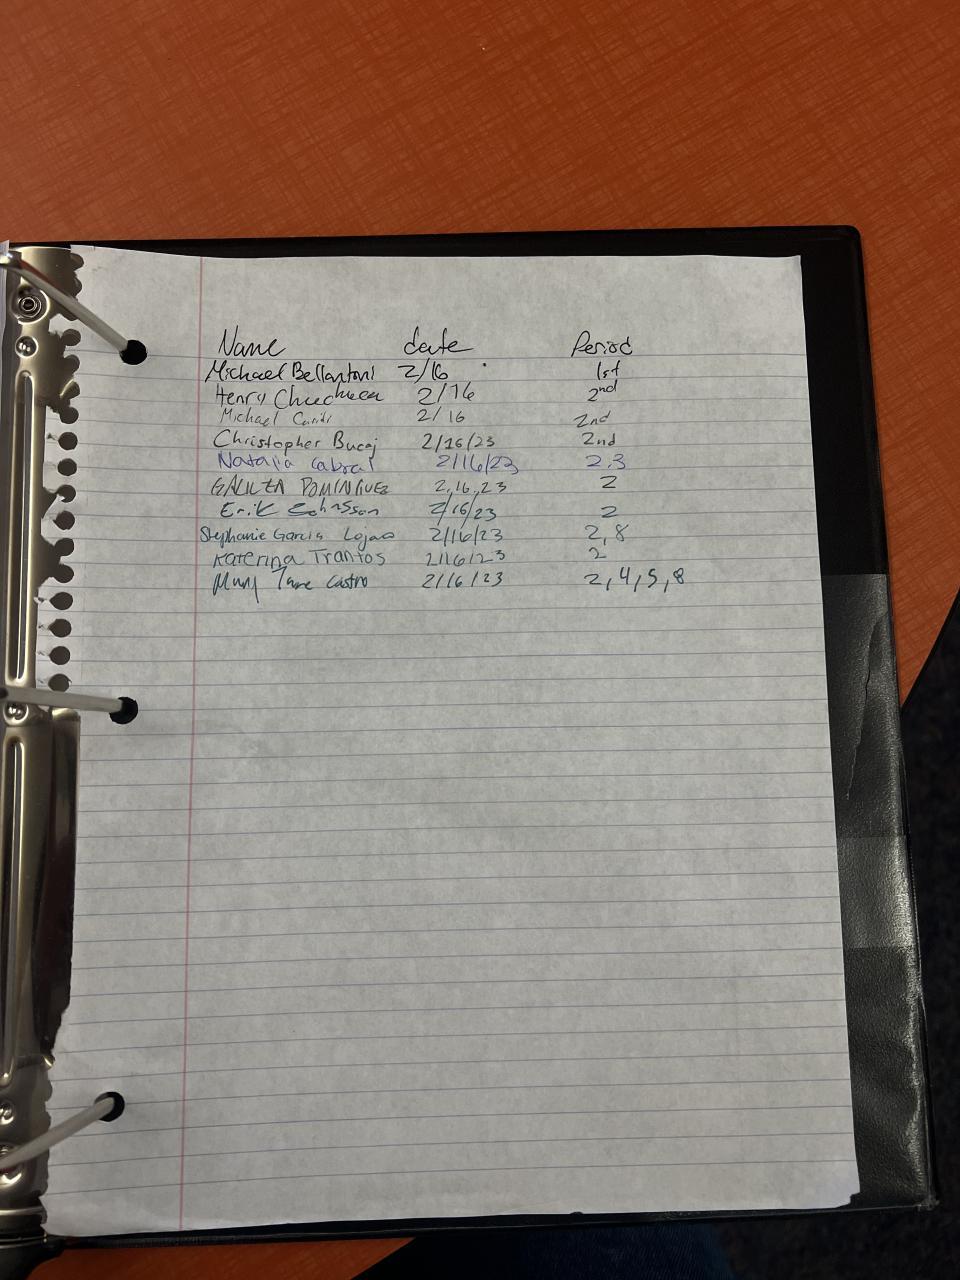 Name date Period
Michael Bellantoni 2/16 1st
Henry 2/16 2nd
Michael 2/16 2nd
Christopher Bucaj 2/16/23 2nd
Natalia Cabral 2/16/23 2,3
DOMINGUEZ 2,16,23 2
Erik Johnsson 2/16/23 2
Stephanie Garcia Lojano 2/16/23 2,8
Katerina Trantos 2/16/23 2
Mary Jane Castro 2/16/23 2,4,5,8